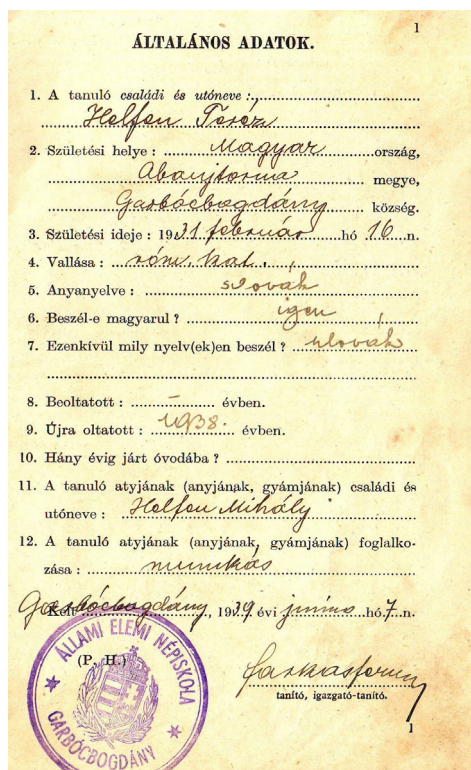 1
ÁLTALÁNOS ADATOK.
1. A tanuló családi és utóneve :
Helfen Teréz
2. Születési helye : Magyar ország,
Abaujtorna megye,
Garbócbogdány község.
3. Születési ideje : 1931 február hó 16 n.
4. Vallása : róm. kat.
5. Anyanyelve : szlovák
6. Beszél-e magyarul ? igen
7. Ezenkívül mily nyelv(ek)en beszél ? szlovák
8. Beoltatott : — évben.
9. Újra oltatott : 1938. évben.
10. Hány évig járt óvodába ?
11. A tanuló atyjának (anyjának, gyámjának) családi és
utóneve : Helfen Mihály
12. A tanuló atyjának (anyjának, gyámjának) foglalko-
zása : munkás
Kelt Garbócbogdány, 1939 évi junius hó 7. n.
(P. H.)
ÁLLAMI ELEMI NÉPISKOLA
GARBÓCBOGDÁNY
tanító, igazgató-tanító.
1